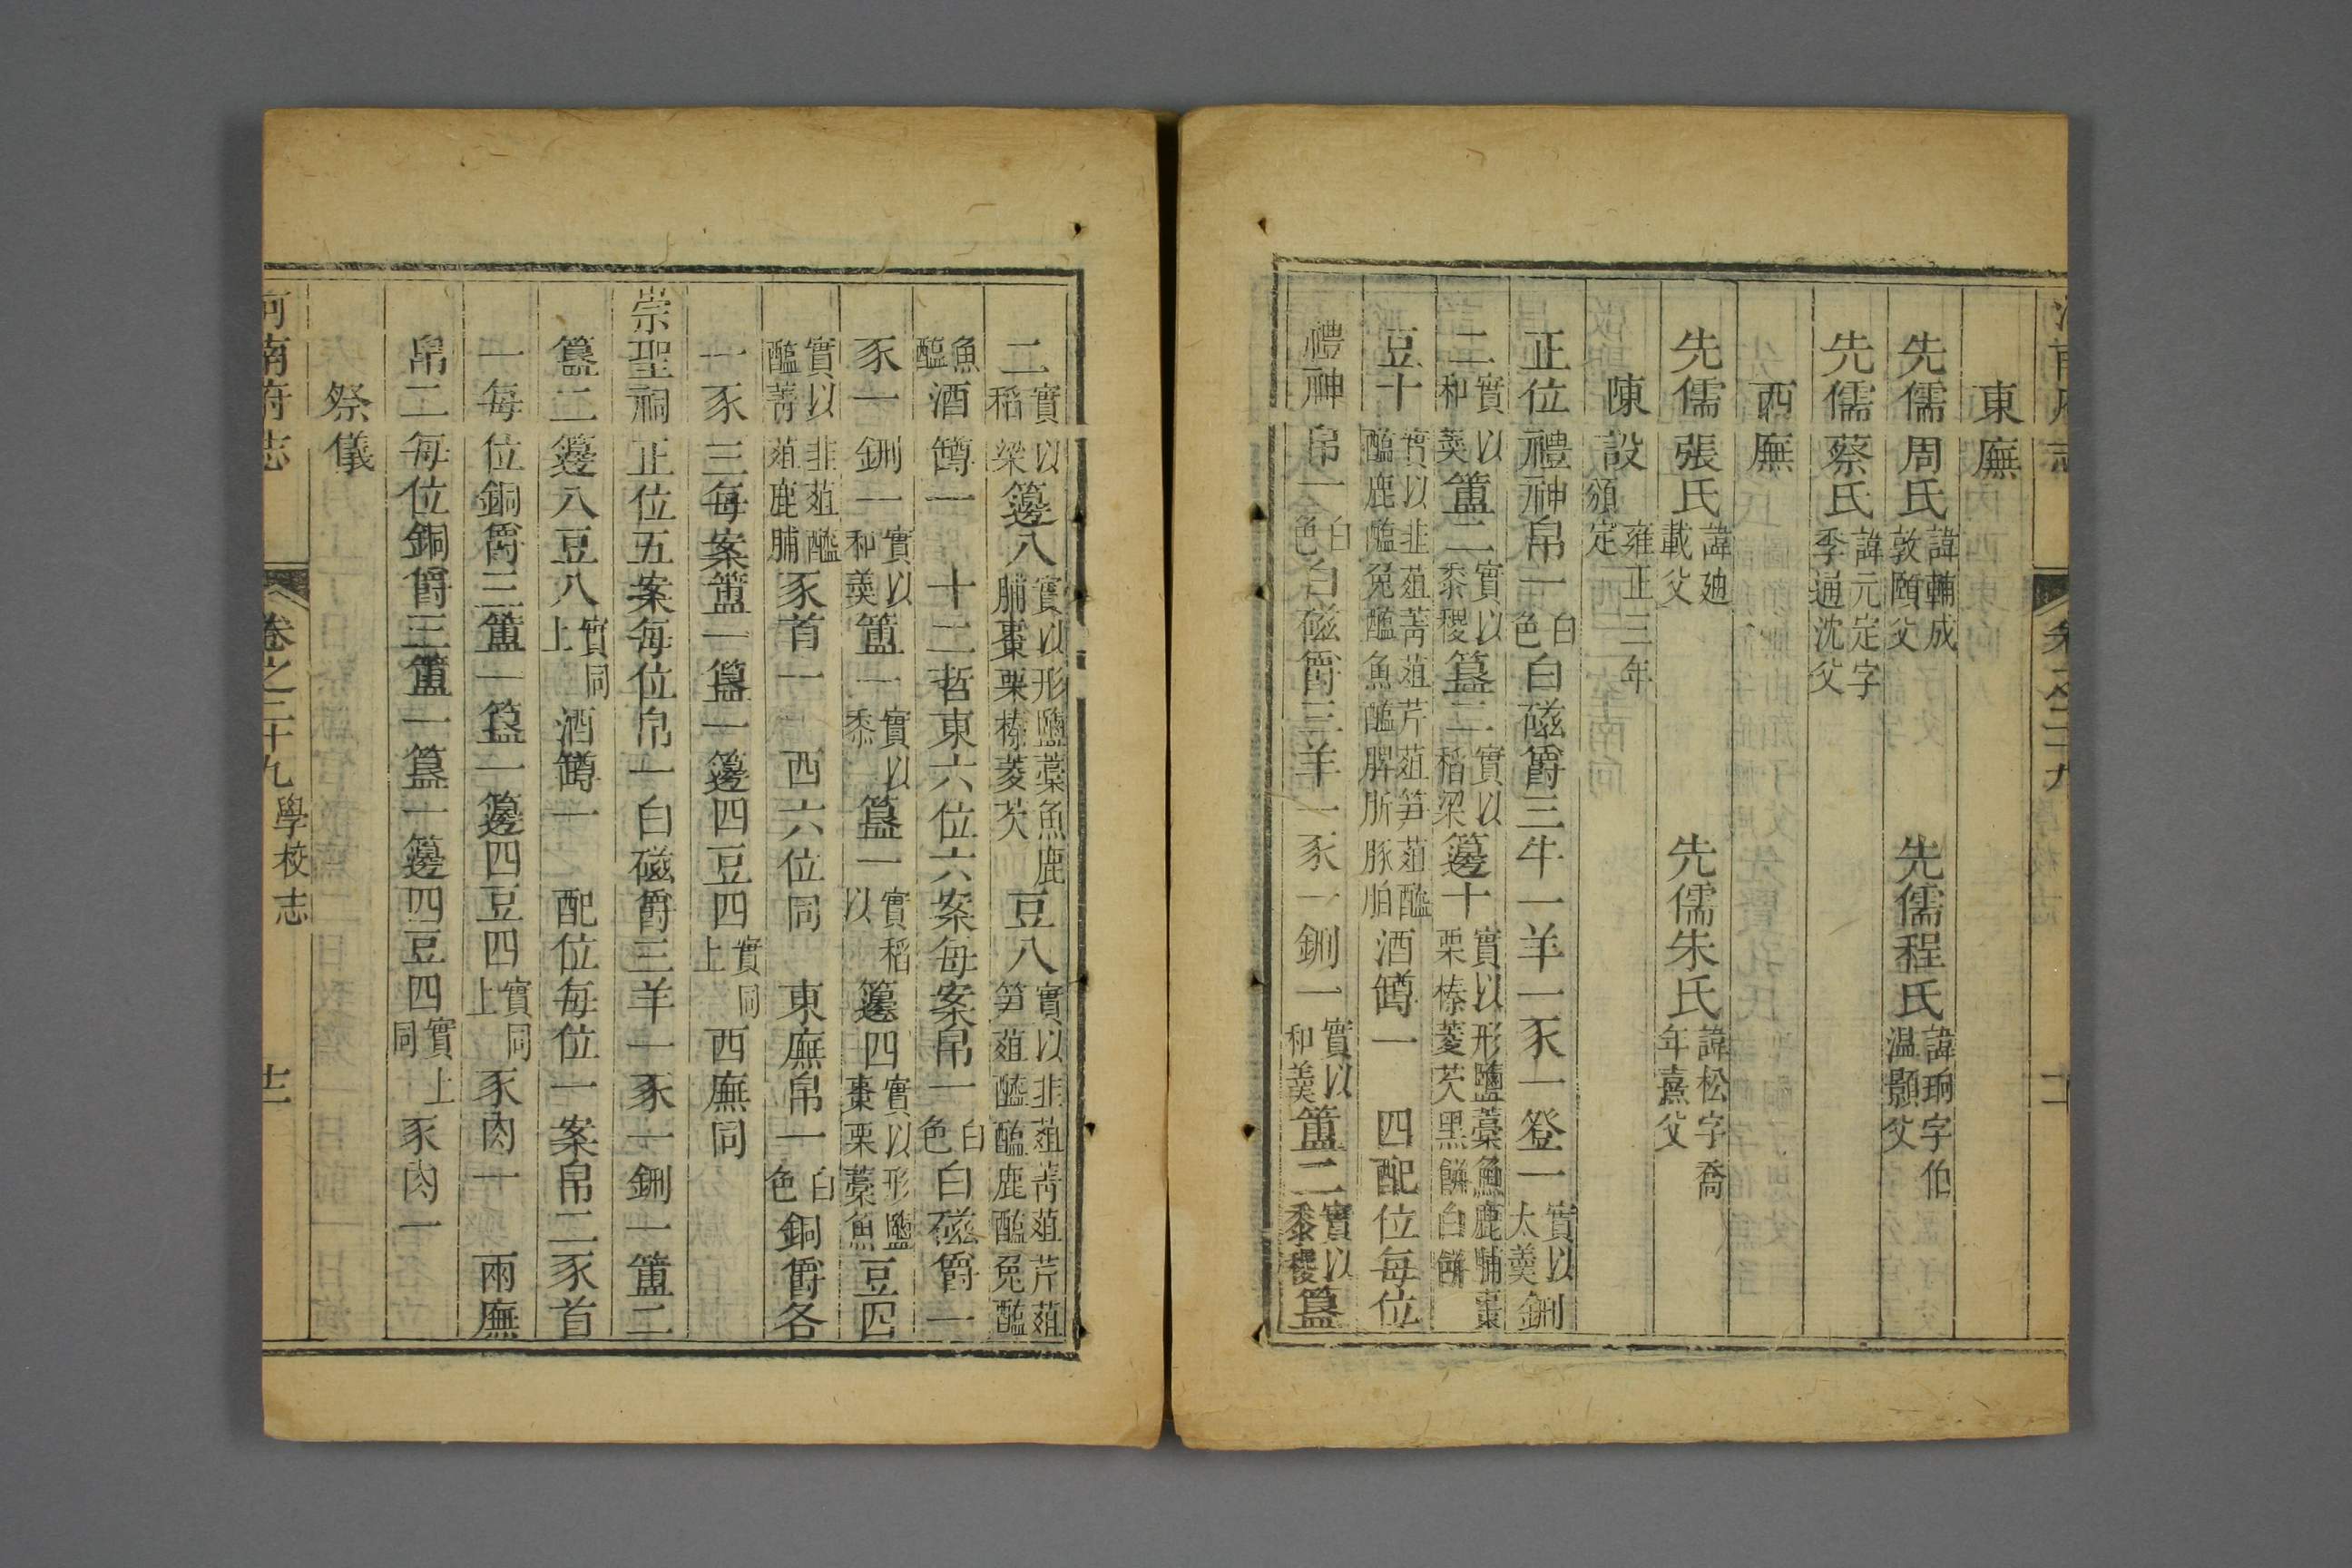 東廡
先儒周氏諱輔成敦頤父 先儒程氏諱珦字伯温顥父
先儒蔡氏諱元定字季通沈父
西廡
先儒張氏諱廸載父 先儒朱氏諱松字喬年熹父
陳設雍正三年頒定
正位禮神帛一白色白磁爵三牛一羊一豕一登一實以太羹鉶
二實以和羹簠二實以黍稷簋二實以稻梁籩十實以形鹽藁魚鹿脯棗栗榛菱芡黑餅白餅
豆十實以韭菹菁菹芹菹笋菹醓醢鹿醢兔醢魚醢脾肵豚胉酒罇一 四配位每位
禮神帛一白色白磁爵三羊一豕一鉶一實以和羹簠二實以黍稷簋
二實以稻梁籩八實以形鹽藁魚鹿脯棗栗榛菱芡豆八實以韭菹菁菹芹菹笋菹醓醢鹿醢兔醢
魚醢酒罇一 十二哲東六位六案每案帛一白色白磁爵一
豕一鉶一實以和羹簠一實以黍簋一實以稻籩四實以形鹽棗栗藁魚豆四
實以韭菹醓醢菁菹鹿脯豕首一 西六位同 東廡帛一白色銅爵各
一豕三每案簠一簋一籩四豆四實同上 西廡同
崇聖祠正位五案每位帛一白磁爵三羊一豕一鉶一簠二
簋二籩八豆八實同上酒罇一 配位每位一案帛二豕首
一每位銅爵三簠一簋一籩四豆四實同上豕肉一 兩廡
帛二每位銅爵三簠一簋一籩四豆四實上同豕肉一
祭儀
河南府志 卷之二十九 學校志